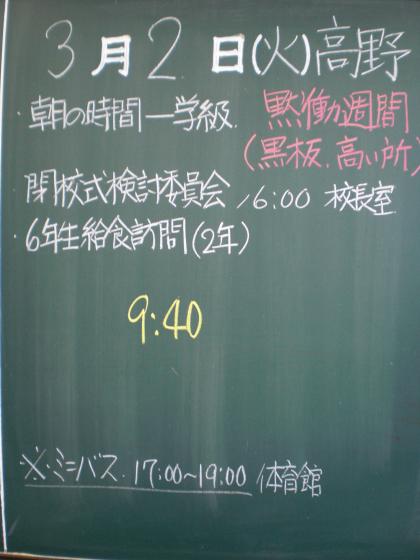 3月2日(火)高野
・朝の時間一学級 黙働週間
(黒板.高い所)
閉校式検討委員会 16:00 校長室
・6年生給食訪問(2年)
9:40
・※・ミニバス.17:00~19:00 体育館